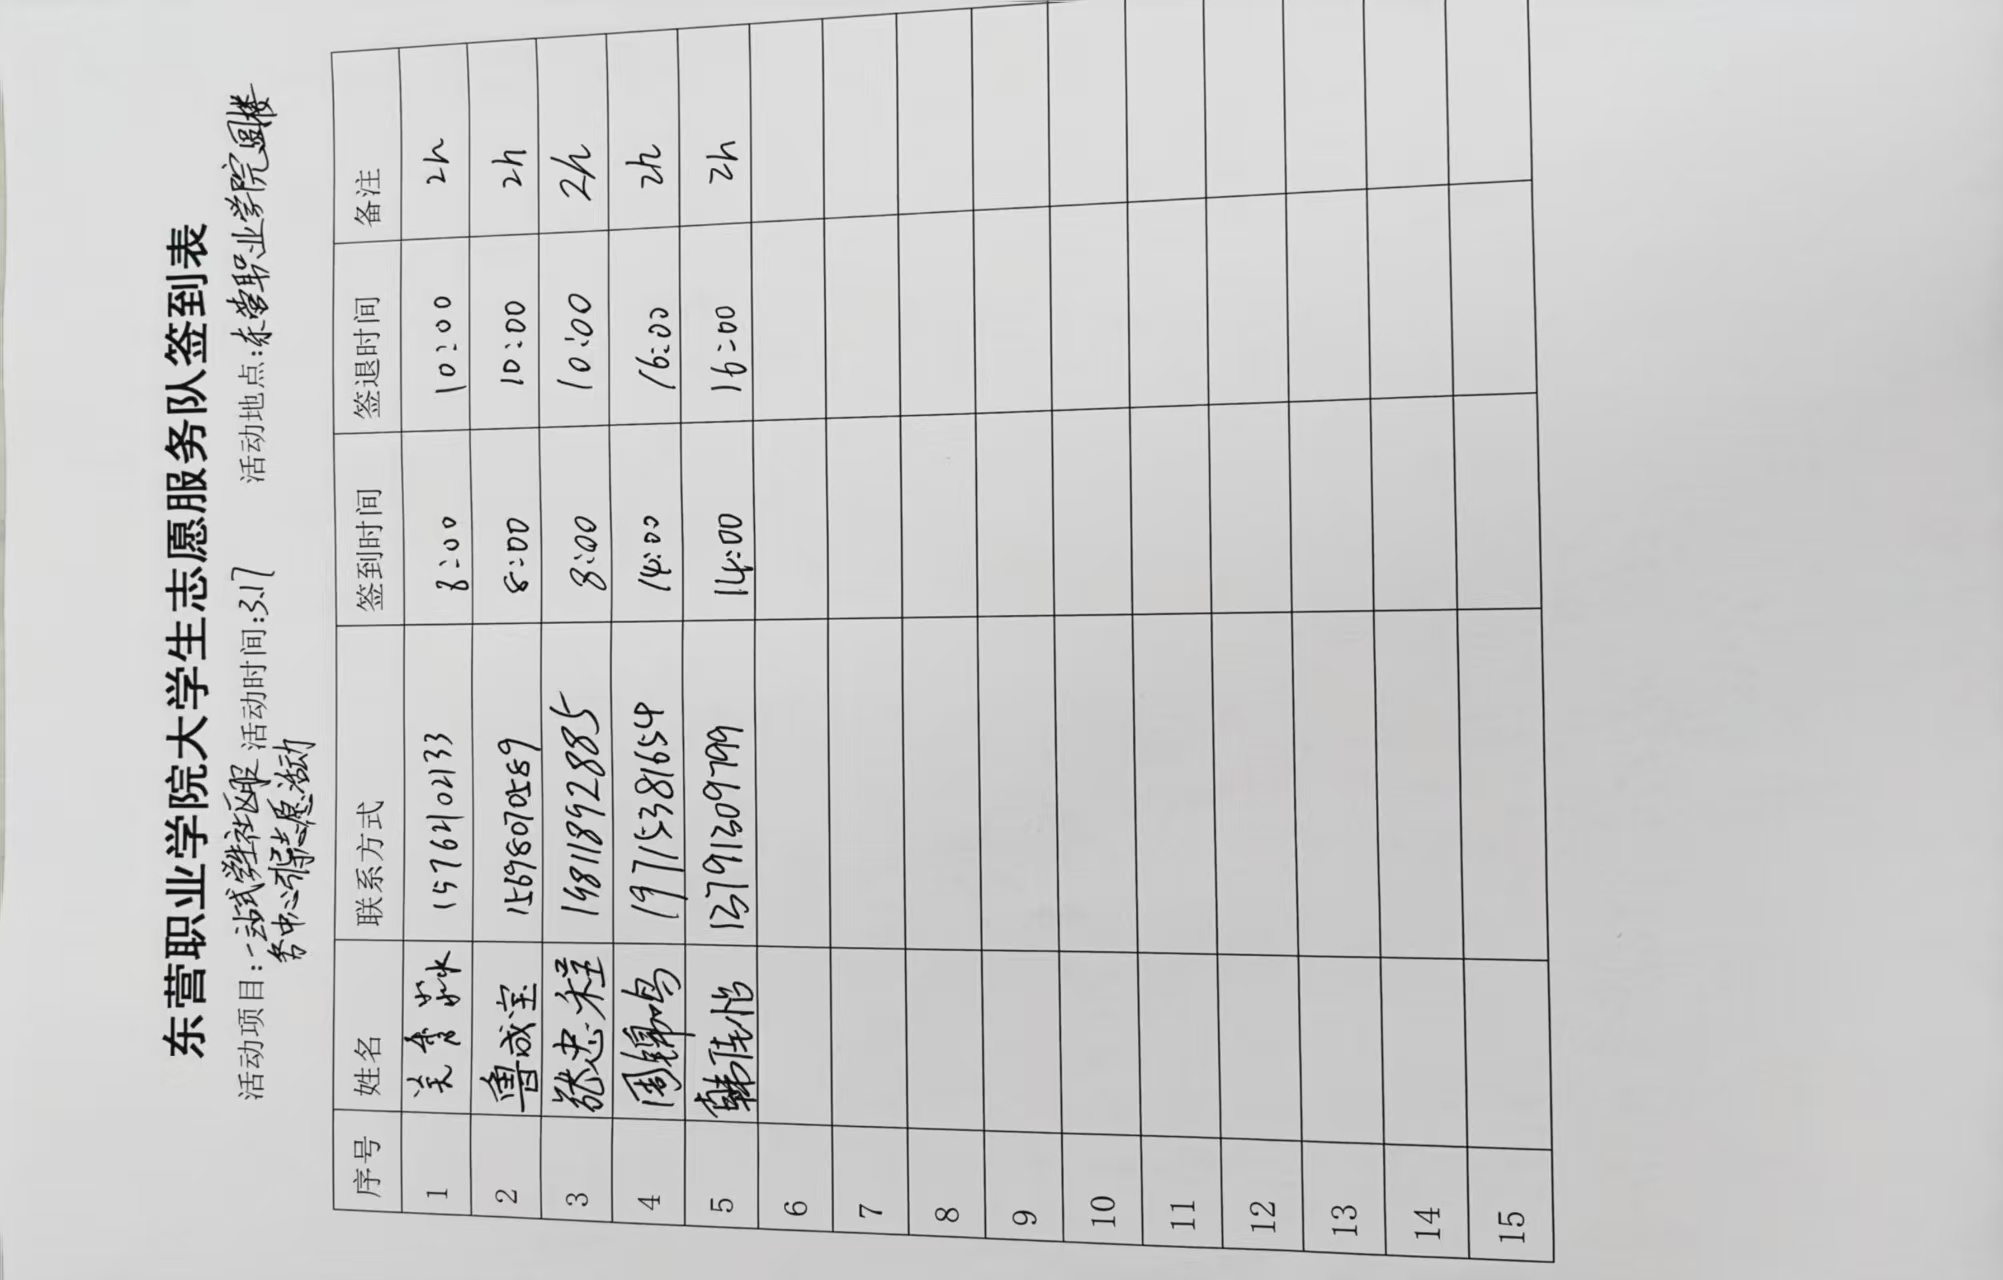 东营职业学院大学生志愿服务队签到表
活动项目:一站式学生社区服 活动时间:3.17 活动地点:东营职业学院圆楼
务中心引导志愿活动
序号 姓名 联系方式 签到时间 签退时间 备注
1 15762102133 8:00 10:00 2h
2 鲁成宝 15698070589 8:00 10:00 2h
3 张忠程 19811892885 8:00 10:00 2h
4 周锦鸣 19715381654 14:00 16:00 2h
5 韩佳怡 13791309799 14:00 16:00 2h
6
7
8
9
10
11
12
13
14
15